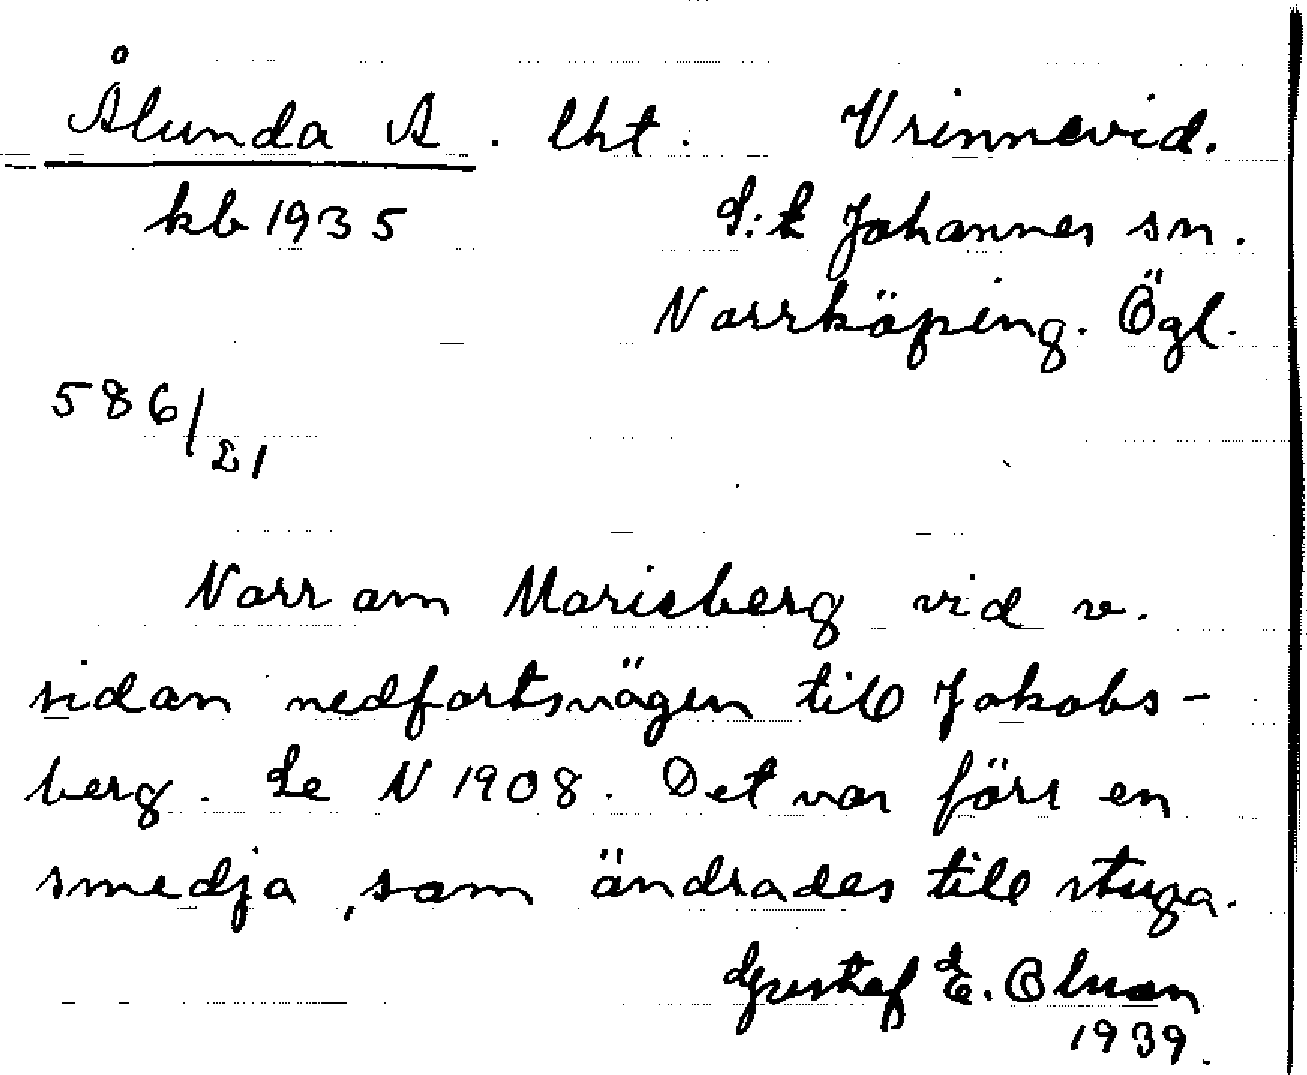 Ålunda A. lht. Vrinnevid.
kb 1935 S:t Johannes sn.
Norrköping. Ögl.
586/21
Norr om Marieberg vid v.
sidan nedfortsvägen till Jakobs-
berg. Se N 1908. Det var förr en
smedja, som ändrades till stuga.
Gustaf E. Olsson
1939.